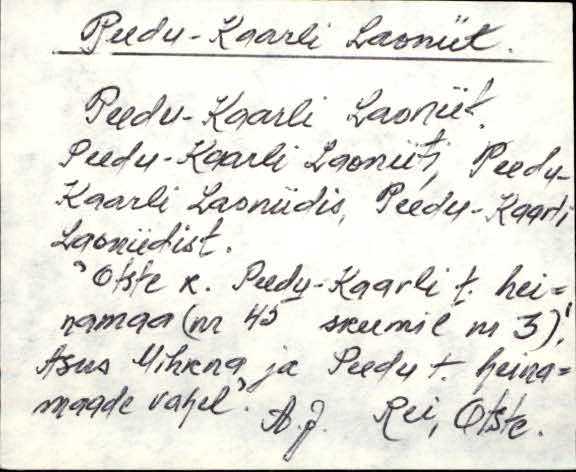 Peedu-Kaarli Laoniit.
Peedu-Kaarli Laoniit.
Peedu-Kaarli Laoniiti, Peedu-
Kaarli Laoniidis, Peedu-Kaarli
Laoniidist.
"Otste k. Peedu-Kaarli t. hei=
namaa (nr 45 skeemil nr 3)!
Asus Mihkna ja Peedu t. heina=
maade vahel". A.J. Rei, Otste.